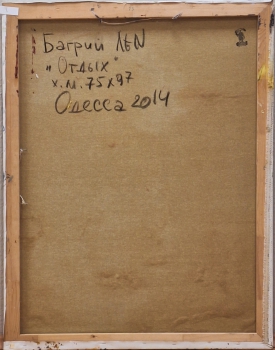 Багрий
"Отдых"
х.м. 75х97
Одесса 2014